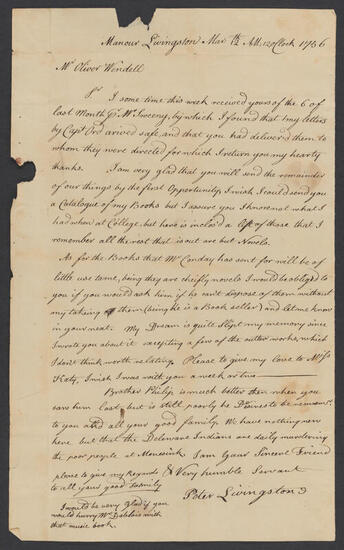 Manour Livingston Mar 7th At 12 oClock 1756
Mr Oliver Wendell
Sr
I some time this week received yours of the 6 of
last Month pr Mr Sweeny, by which I found that my letters
by Capt Ord arived safe, and that you had deliver'd them to
whom they were directed for which I return you my hearty
thanks. I am very glad that you will send the remainder
of our things by the first Opportunity, I wish I could send you
a Catalogue of my Books but I assure you I know not what I
had when at College, but have inclos'd a list of those that I
remember all the rest that is out are but Novels.
As for the Books that Mr Conday has sent for will be of
little use to me, being they are chiefly novels I would be obliged to
you if you would ask him if he can't dispose of them without
my taking them (being he is a Book seller) and let me know
in your next. My Dream is quite Slipt my memory since
I wrote you about it excepting a few of the outher works, which
I don't think worth relating. Please to give my love to Miss
Katy, I wish I was with you a week or two
Brother Philip is much better then when you
saw him last but is still poorly he Desires to be remem
to you and all your good family. We have nothing new
here but that the Deleware Indians are daily murdering
the poor people at Menesink I am your Sincere Friend
please to give my Regards & Very humble Servant
to all your good family
Peter Livingston
I would be very glad if you
would hurry Mr Deblois with
that music book.